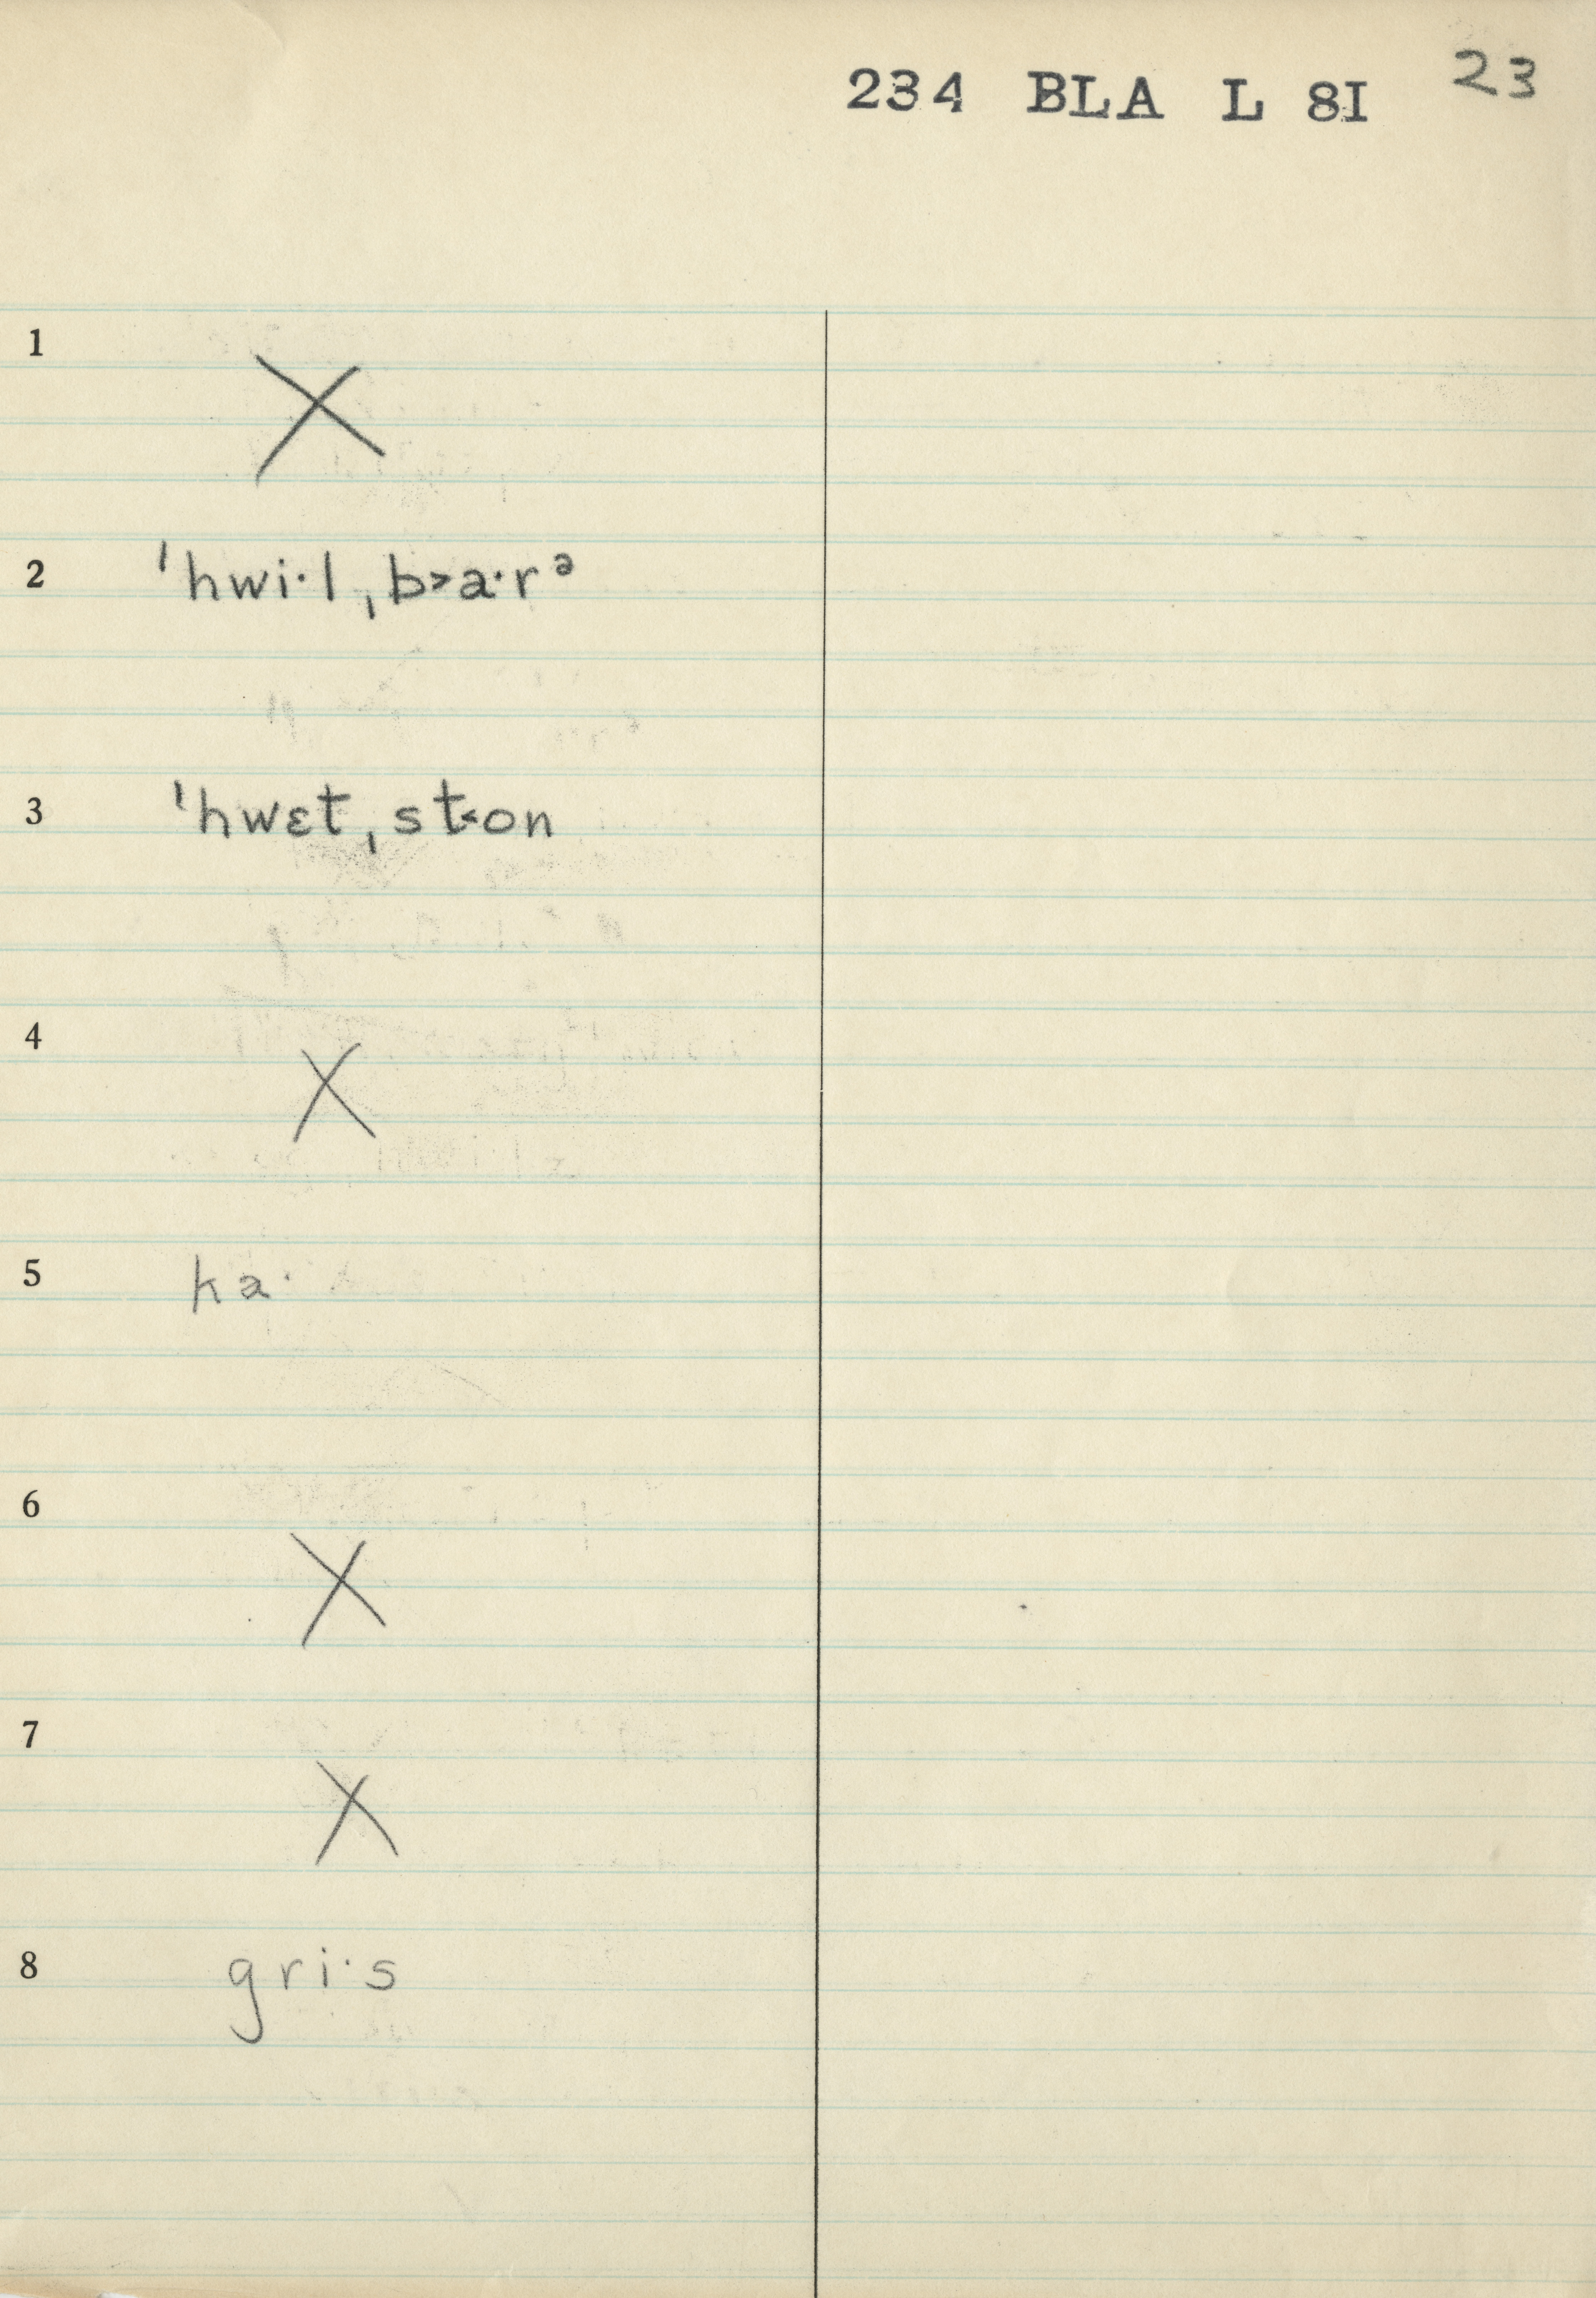 234 BLA L 8I 23
1
X
2 ˈhwi·l ˌb˃a·rᵊ
3 ˈhwɛt ˌst˂on
4
X
5 ka·
6
X
7
X
8 gri·s